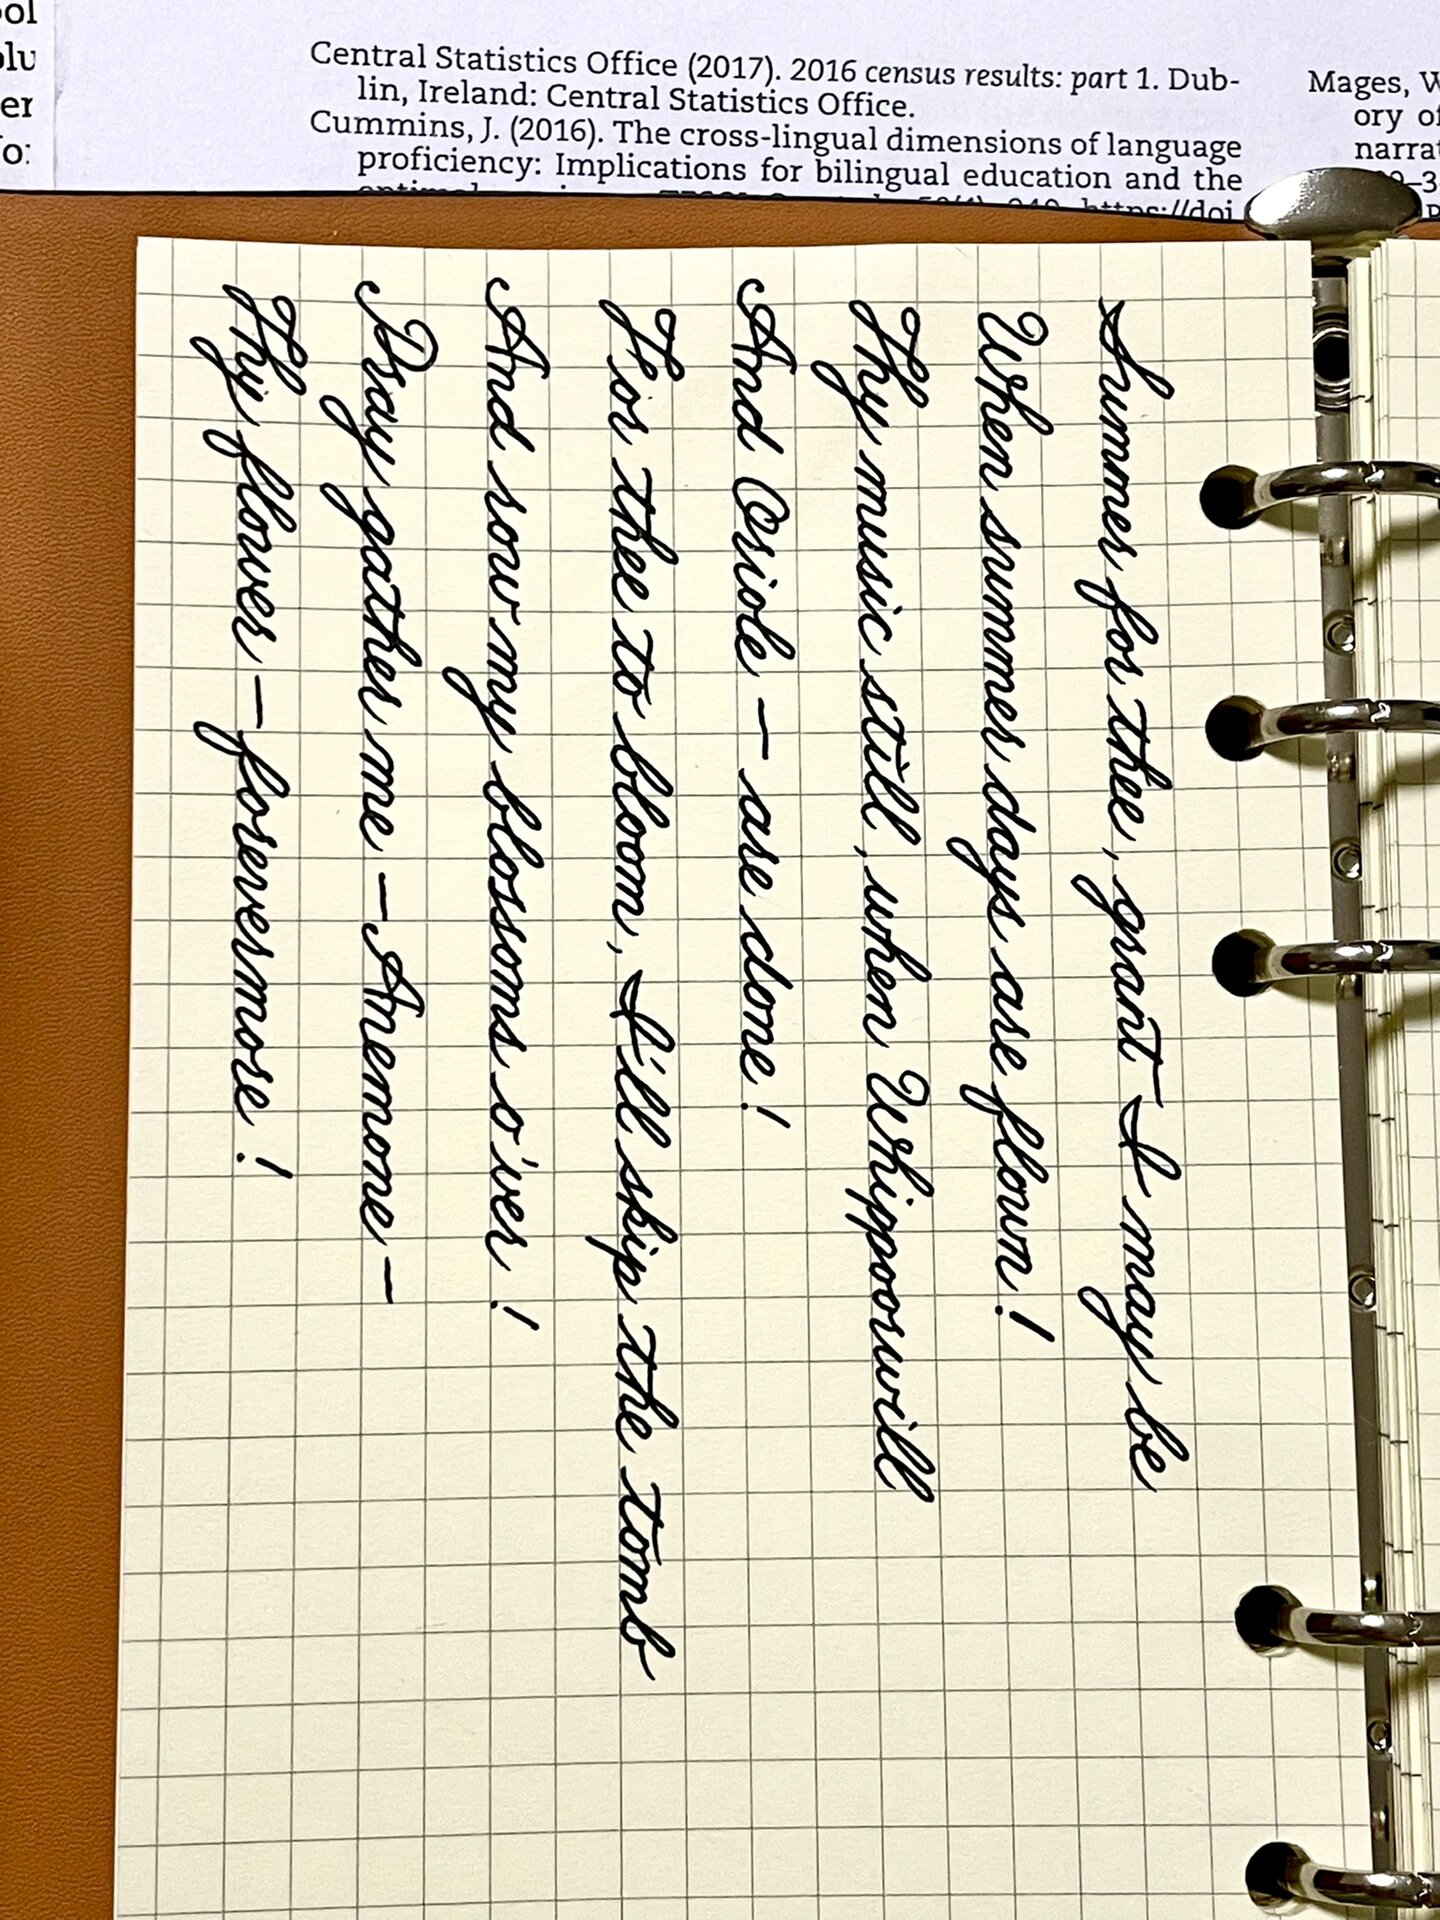 Central Statistics Office (2017). 2016 census results: part 1. Dub-
lin, Ireland: Central Statistics Office.
Cummins, J. (2016). The cross-lingual dimensions of language
proficiency: Implications for bilingual education and the
Mages, W
ory of
narrat
Summer for thee, grant I may be
When summer days are flown!
Thy music still, when Whippoorwill
And Oriole — are done!
For thee to bloom, I'll skip the tomb
And row my blossoms o'er!
Pray gather me — Anemone —
Thy flower — forevermore!